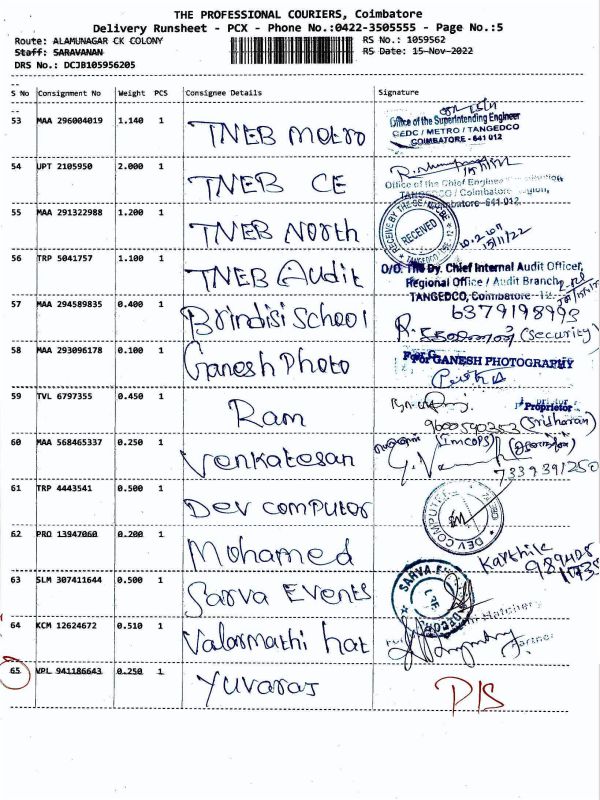 THE PROFESSIONAL COURIERS, Coimbatore
Delivery Runsheet - PCX - Phone No.:0422-3505555 - Page No.:5
Route: ALAMUNAGAR CK COLONY RS No.: 1059562
Staff: SARAVANAN RS Date: 15-Nov-2022
DRS No.: DCJB105956205
S No Consignment No Weight PCS Consignee Details Signature
53 MAA 296004019 1.140 1 TNEB Metro
Office of the Superintending Engineer
CEDC / METRO / TANGEDCO
COIMBATORE - 641 012
54 UPT 2105950 2.000 1 TNEB CE
15/11/22
Office of the Chief Engineer
TANGEDCO / Coimbatore Region,
Coimbatore-641 012.
55 MAA 291322988 1.200 1 TNEB North
RECEIVED
15/11/22
56 TRP 5041757 1.100 1 TNEB Audit
O/O. The Dy. Chief Internal Audit Officer,
Regional Office / Audit Branch,
TANGEDCO, Coimbatore - 12.
57 MAA 294589835 0.400 1 Brindisi School
6379198993
(Security)
58 MAA 293096178 0.100 1 Ganesh Photo
For GANESH PHOTOGRAPHY
Proprietor
59 TVL 6797355 0.450 1 Ram
9600590252 (Sridharan)
60 MAA 568465337 0.250 1 Venkatesan
(IMCOPS)
7339391250
61 TRP 4443541 0.500 1 Dev computer
DEV COMPUTER
62 PRO 13947060 0.200 1 Mohamed
Karthik
63 SLM 307411644 0.500 1 Sarva Events
64 KCM 12624672 0.510 1 Valarmathi hat
Hatchery
Partner
65 VPL 941186643 0.250 1 Yuvaraj
D/S